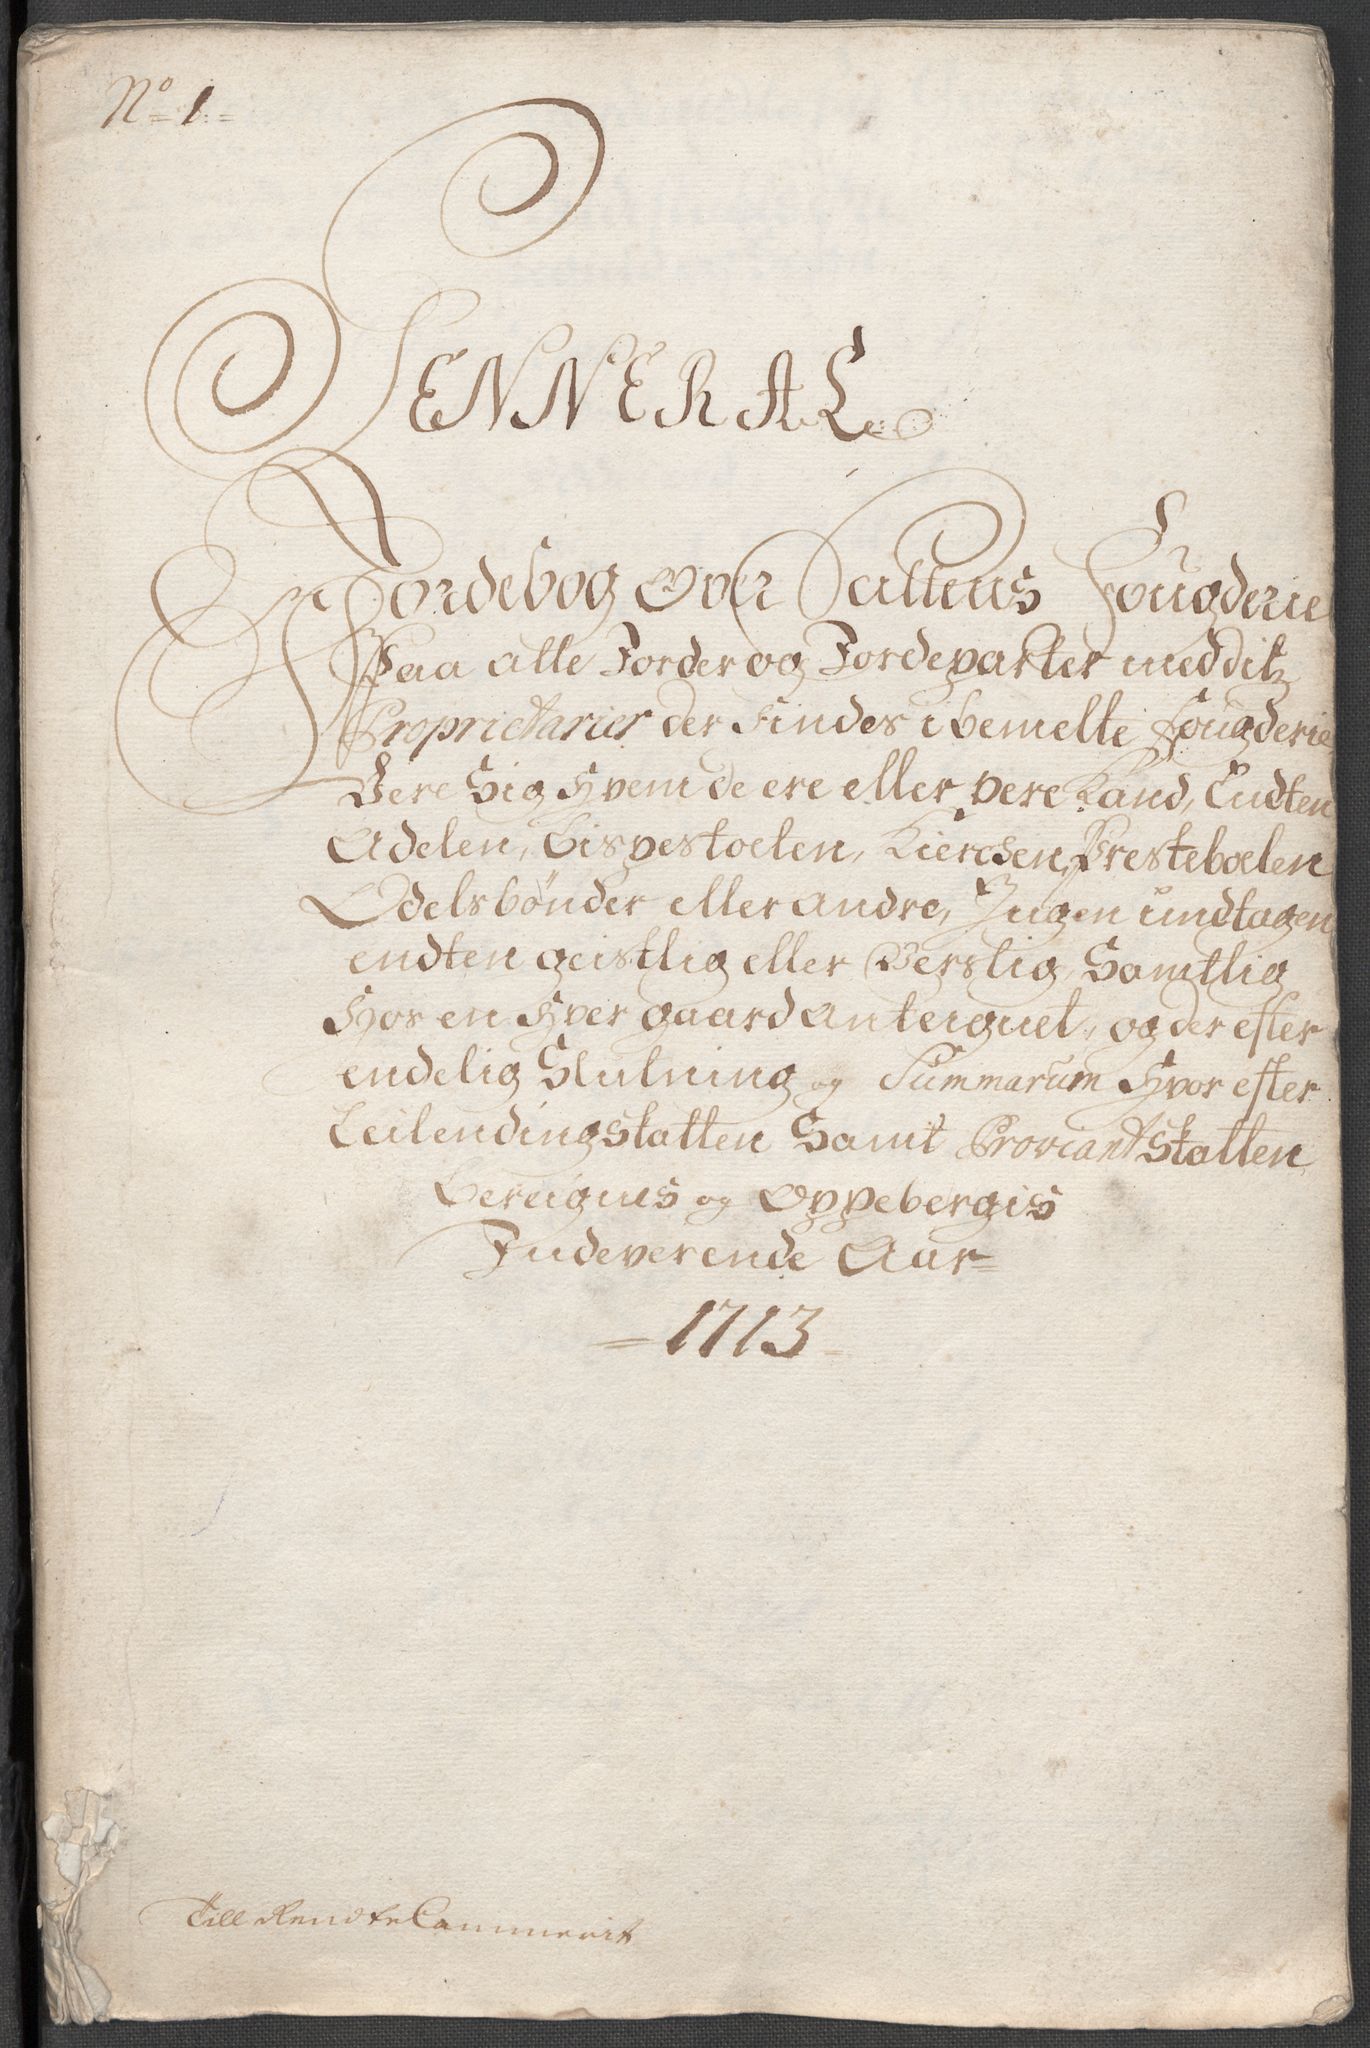 No 1
GENNERAL
Jordebog Over Saltens Fougderie
Paa alle Jorder og Jordeparter med ditz
Proprietarier der Findes i bemelte Fougderie
Være Sig Hvem de ere eller være Kand, Endten
Adelen, Bispestoelen, Kierchen, Presteboelen
Odelsbønder eller andre, Ingen undtagen
endten geistlig eller Verslig, Samtlig
Hos en Hver gaard anteignet, og der efter
endelig Slutning og Summarum Hvor efter
Leilendingskatten Samt Proviantskatten
bereignis og Oppebergis
Indeverende Aar
1713
Till RendteCammerit